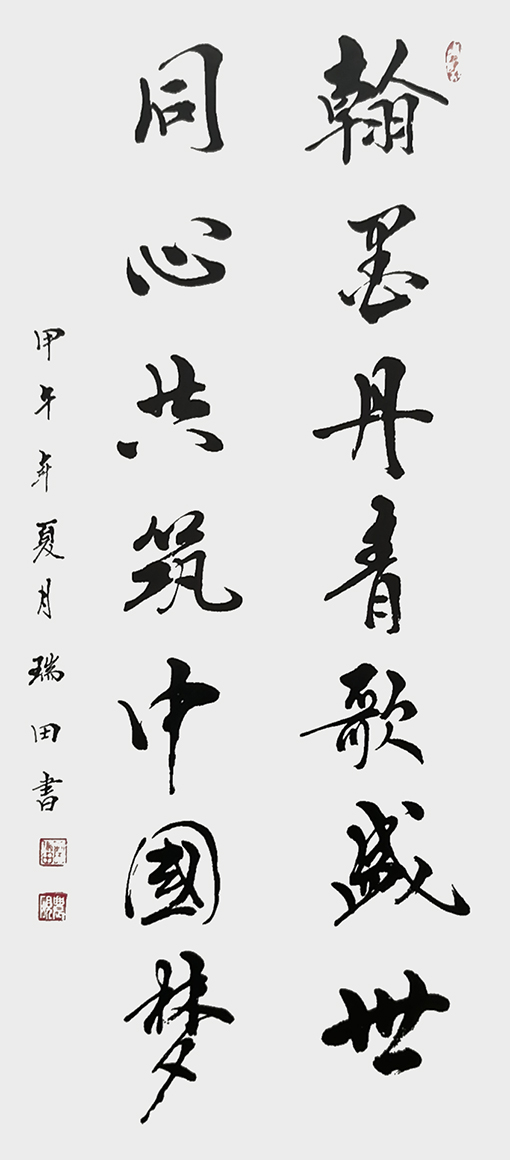 翰墨丹青歌盛世
同心共筑中國梦
甲午年夏月瑞田書